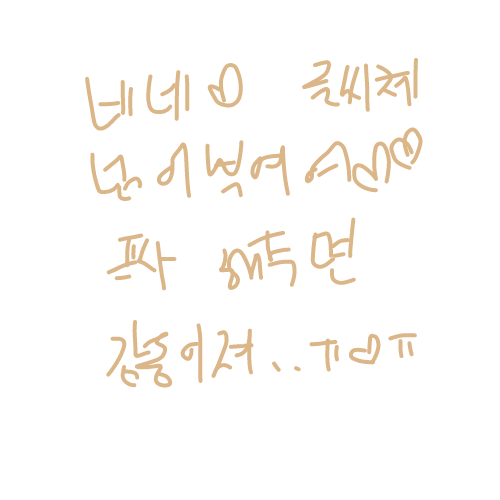 네네♡ 글씨체
넘이뻐여여♡♡
프사 해두면
감동이져..ㅠ♡ㅠ